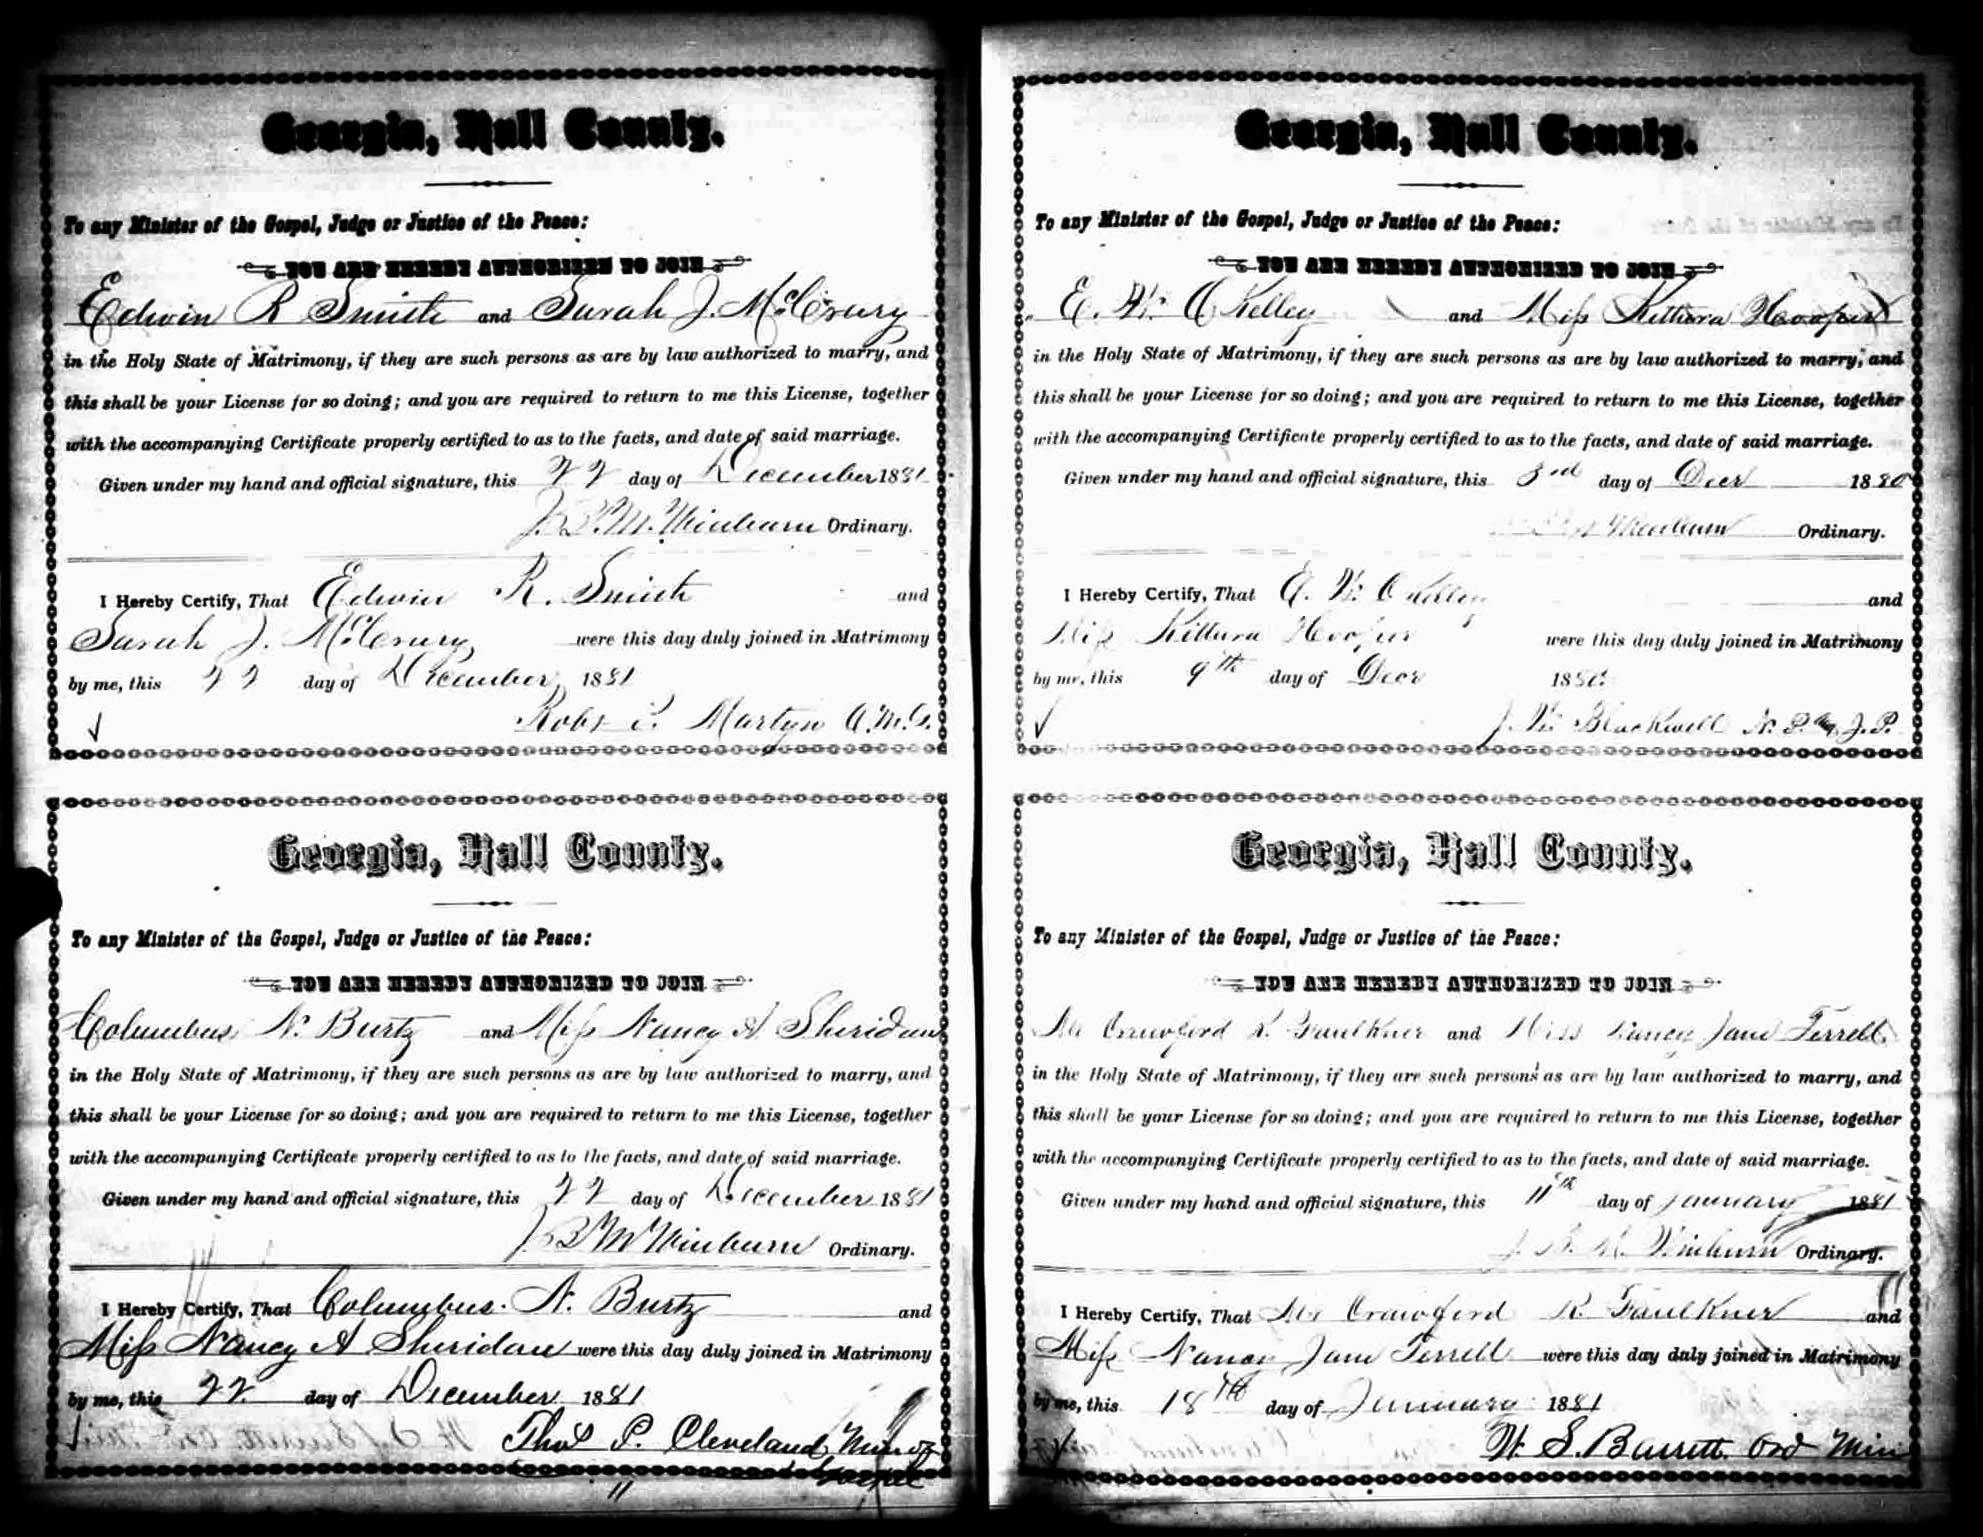 Georgia, Hall County.
To any Minister of the Gospel, Judge or Justice of the Peace:
YOU ARE HEREBY AUTHORIZED TO JOIN
Edwin R Smith and Sarah J. McCrury
in the Holy State of Matrimony, if they are such persons as are by law authorized to marry, and
this shall be your License for so doing; and you are required to return to me this License, together
with the accompanying Certificate properly certified to as to the facts, and date of said marriage.
Given under my hand and official signature, this 22 day of December 1881
J. B. M. Winburn Ordinary.
I Hereby Certify, That Edwin R. Smith and
Sarah J. McCrury were this day duly joined in Matrimony
by me, this 22 day of December 1881
Robt Martyn
Georgia, Hall County.
To any Minister of the Gospel, Judge or Justice of the Peace:
YOU ARE HEREBY AUTHORIZED TO JOIN
Columbus N. Burtz and Miss Nancy A Sheridan
in the Holy State of Matrimony, if they are such persons as are by law authorized to marry, and
this shall be your License for so doing; and you are required to return to me this License, together
with the accompanying Certificate properly certified to as to the facts, and date of said marriage.
Given under my hand and official signature, this 22 day of December 1881
J B M Winburn Ordinary.
I Hereby Certify, That Columbus. N. Burtz and
Miss Nancy A Sheridan were this day duly joined in Matrimony
by me, this 22 day of December 1881
Thos P. Cleveland, Min of
Gospel
Georgia, Hall County.
To any Minister of the Gospel, Judge or Justice of the Peace:
YOU ARE HEREBY AUTHORIZED TO JOIN
E. W. O Kelley and Miss Kittura Hooper
in the Holy State of Matrimony, if they are such persons as are by law authorized to marry, and
this shall be your License for so doing; and you are required to return to me this License, together
with the accompanying Certificate properly certified to as to the facts, and date of said marriage.
Given under my hand and official signature, this 3rd day of Decr 1880
Winburn Ordinary.
I Hereby Certify, That E. W. O Kelley and
Miss Kittura Hooper were this day duly joined in Matrimony
by me, this 9th day of Decr 1880.
J. W. Blackwell N. P. J. P.
Georgia, Hall County.
To any Minister of the Gospel, Judge or Justice of the Peace:
YOU ARE HEREBY AUTHORIZED TO JOIN
Mr Crawford R. Faulkner and Miss Nancy Jane Terrell
in the Holy State of Matrimony, if they are such persons as are by law authorized to marry, and
this shall be your License for so doing; and you are required to return to me this License, together
with the accompanying Certificate properly certified to as to the facts, and date of said marriage.
Given under my hand and official signature, this 11th day of January 1881
J. B. M. Winburn Ordinary.
I Hereby Certify, That Mr Crawford R. Faulkner and
Miss Nancy Jane Terrell were this day duly joined in Matrimony
by me, this 18th day of January 1881
W. S. Barrett Ord Min